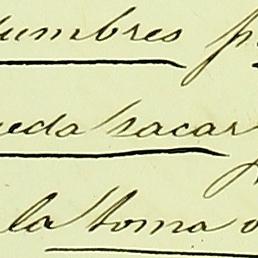 umbres p
ueda sacar
la toma